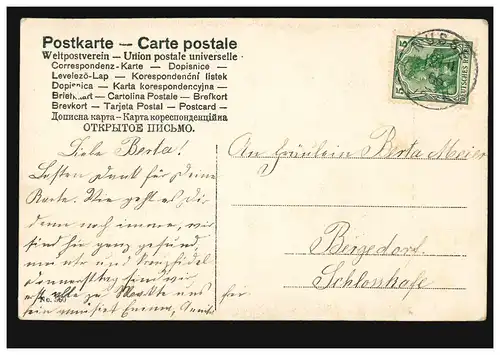 Postkarte — Carte postale
Weltpostverein — Union postale universelle
Correspondenz-Karte — Dopisnice
Levelező-Lap — Korespondenční lístek
Dopisnica — Karta korespondencyjna
Briefkaart — Cartolina Postale — Brefkort
Brevkort — Tarjeta Postal — Postcard
Дописна карта — Карта кореспонденційна
ОТКРЫТОЕ ПИСЬМО.
5
5
DEUTSCHES REICH
Liebe Berta!
Besten Dank für Deine
Karte. Wie geht es Dir
denn noch immer, wir
sind hier ganz gesund
Donnerstag sind wir
alle zu Markte
No. 360
An Fräulein Berta Meier
Bergedorf.
hier
Schlosshafe